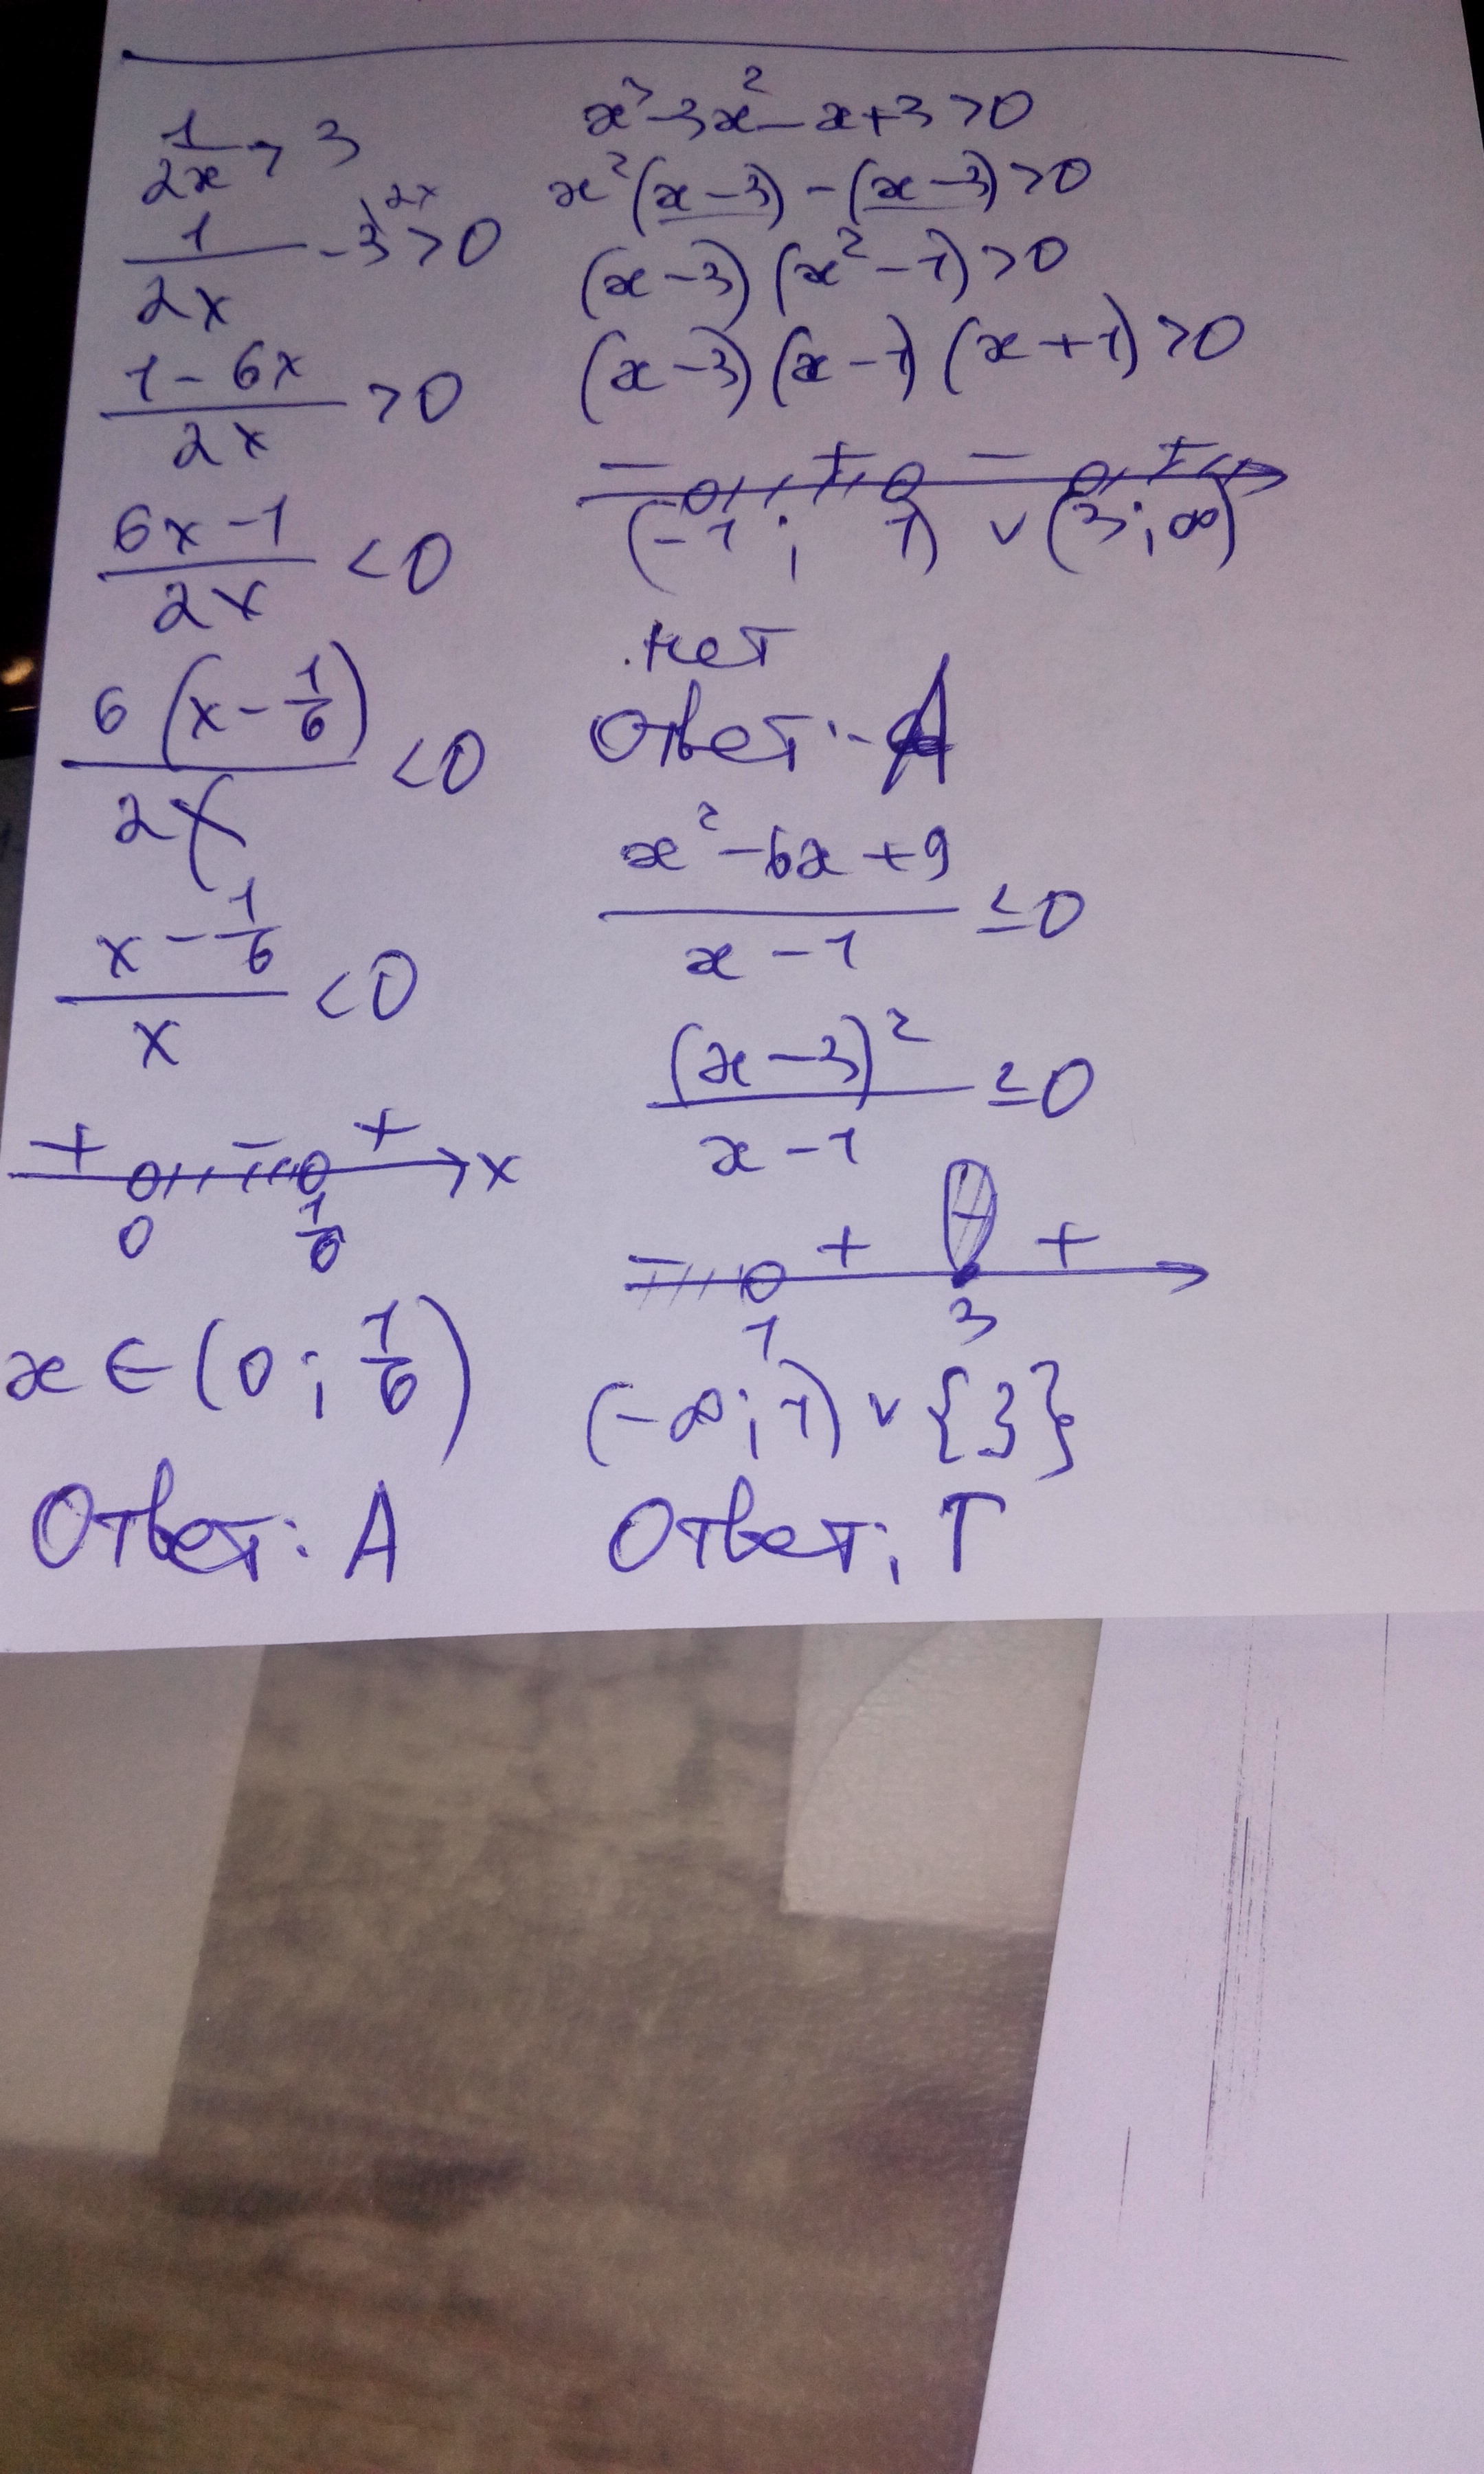 1/2x > 3
1/2x - 3^\2x > 0
1 - 6x/2x > 0
6x - 1/2x < 0
6(x - 1/6)/2x < 0
x - 1/6/x < 0
+ - + x
0 1/6
x ∈ (0; 1/6)
Ответ: А
x³ - 3x² - x + 3 > 0
x²(x - 3) - (x - 3) > 0
(x - 3)(x² - 1) > 0
(x - 3)(x - 1)(x + 1) > 0
- + - +
(-1; 1) ∨ (3; ∞)
нет
Ответ: А
x² - 6x + 9/x - 1 ≤ 0
(x - 3)²/x - 1 ≤ 0
- + +
1 3
(-∞; 1) ∨ {3}
Ответ: Г